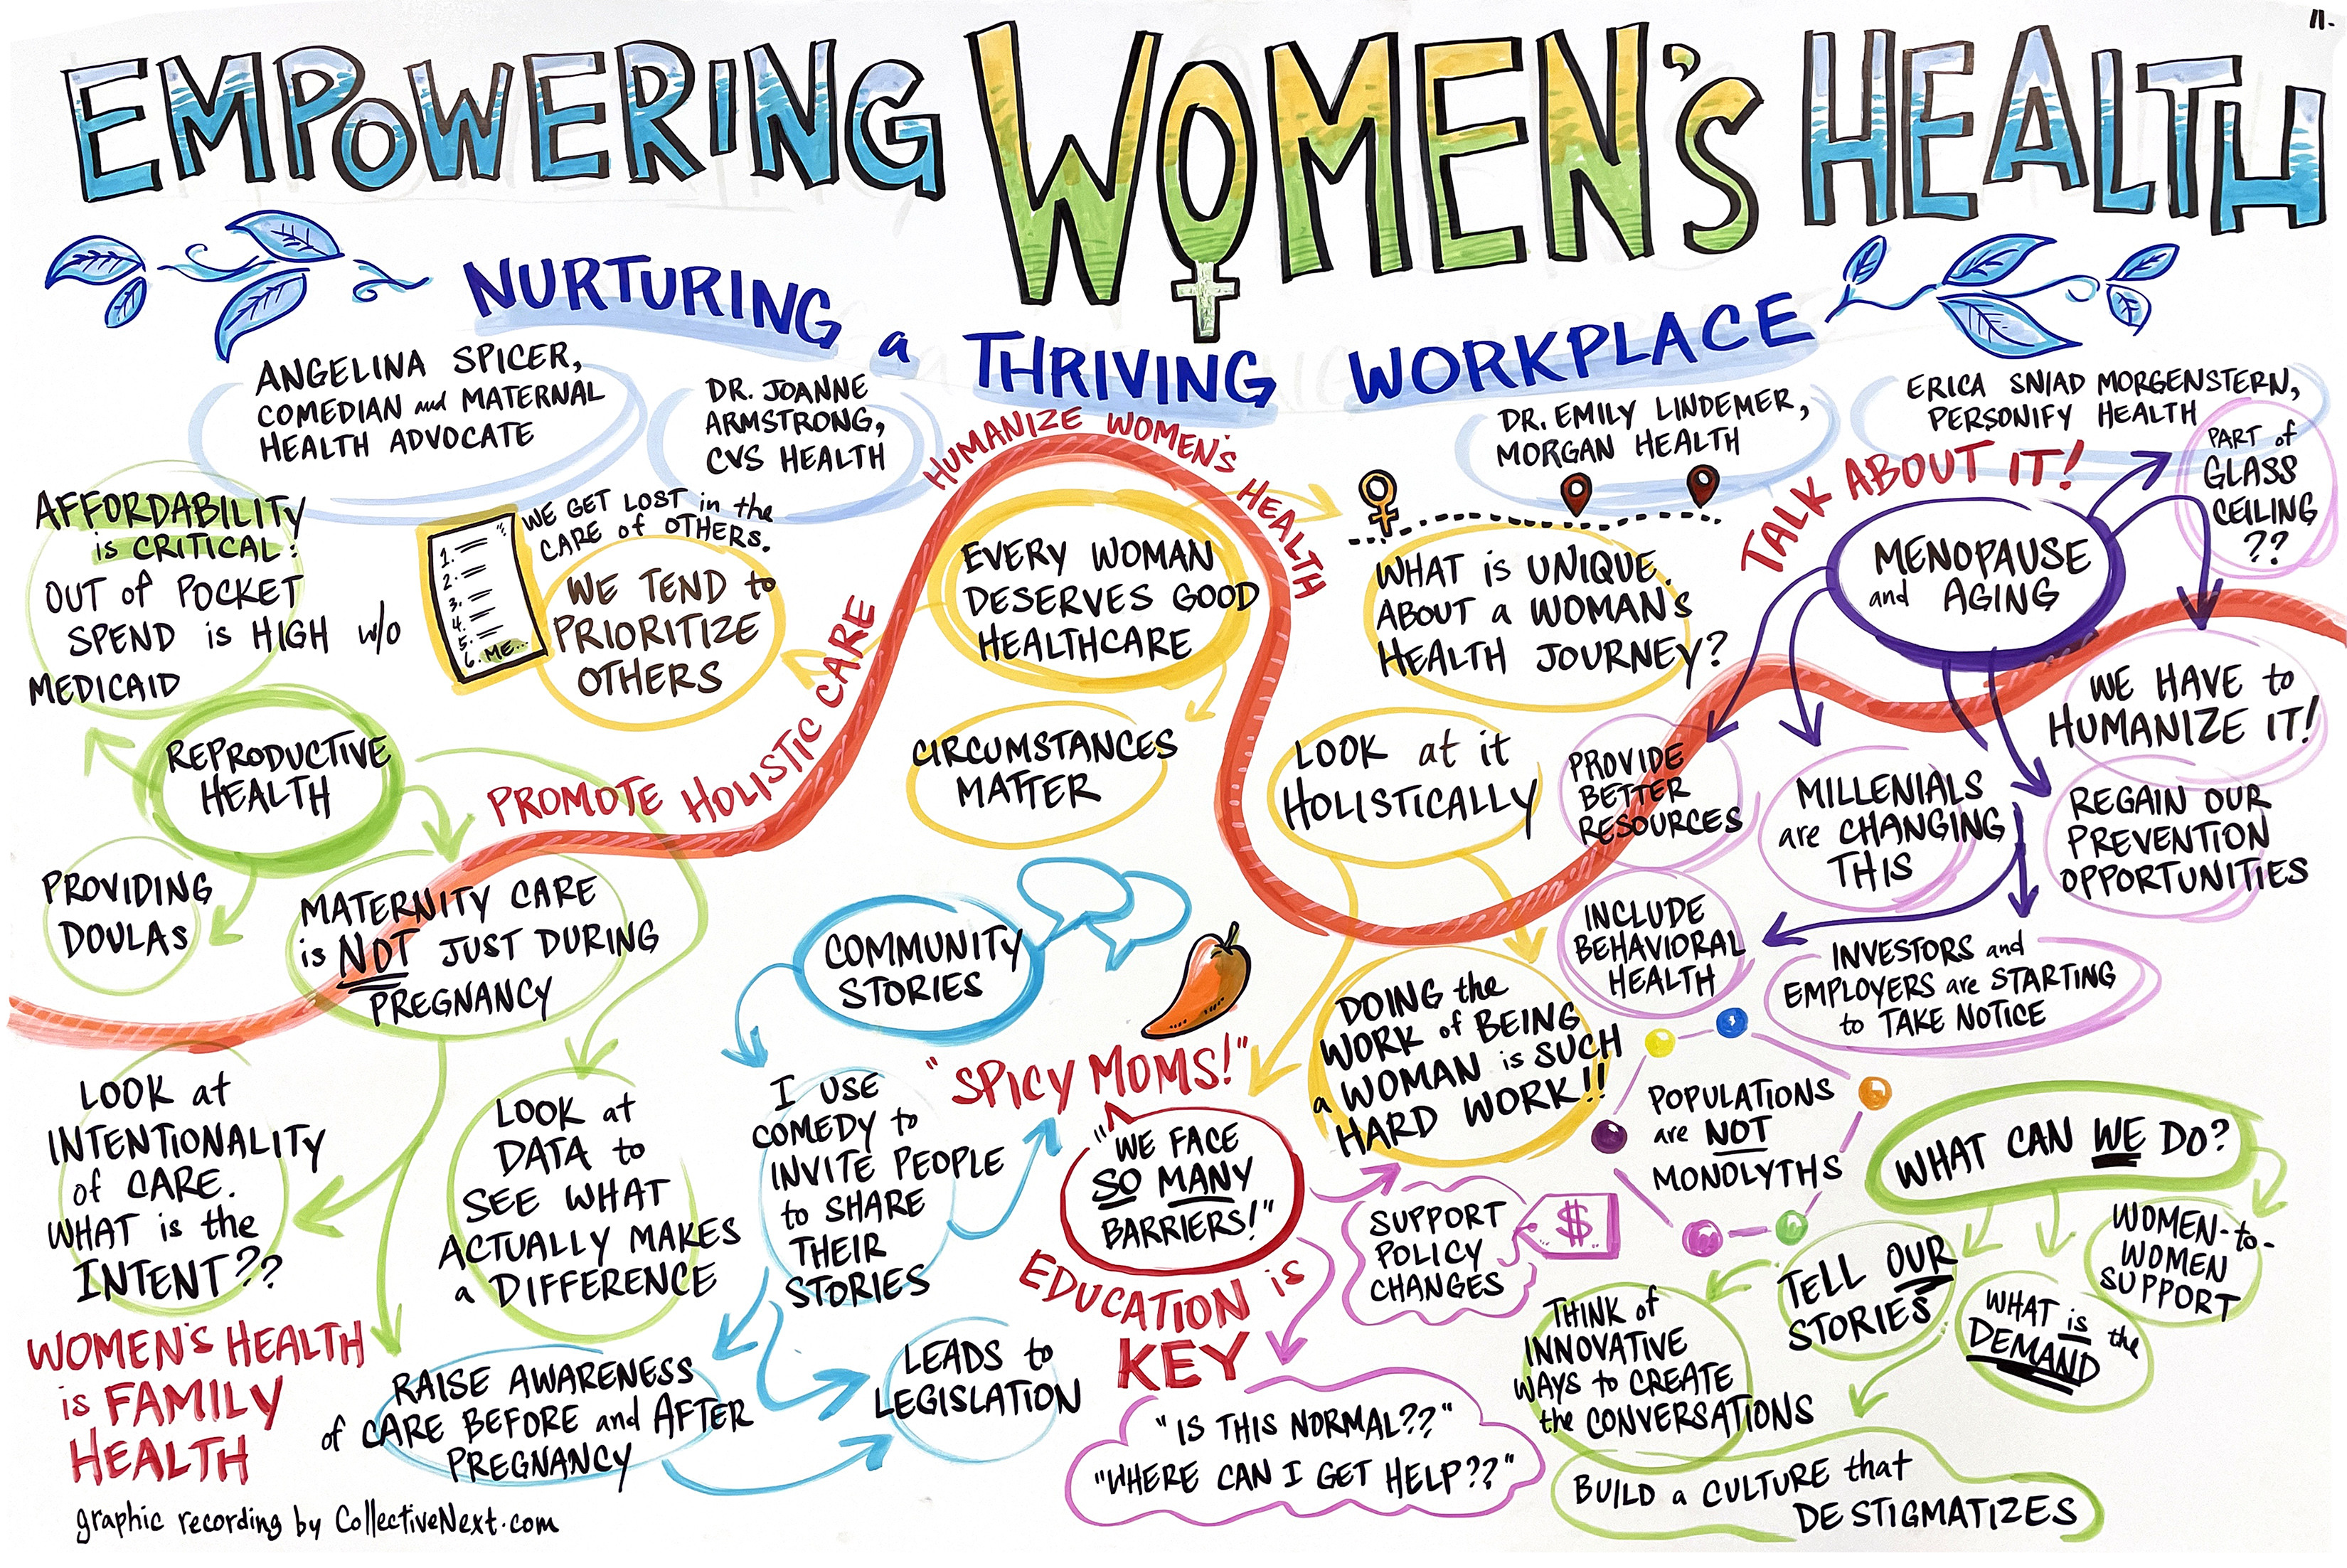 EMPOWERING WOMEN'S HEALTH
NURTURING a THRIVING WORKPLACE
ANGELINA SPICER,
COMEDIAN and MATERNAL
HEALTH ADVOCATE
DR. JOANNE
ARMSTRONG,
CVS HEALTH
DR. EMILY LINDEMER,
MORGAN HEALTH
ERICA SNIAD MORGENSTERN,
PERSONIFY HEALTH
AFFORDABILITY
is CRITICAL:
OUT of POCKET
SPEND is HIGH w/o
MEDICAID
REPRODUCTIVE
HEALTH
PROVIDING
DOULAS
MATERNITY CARE
is NOT JUST DURING
PREGNANCY
LOOK at
INTENTIONALITY
of CARE.
WHAT is the
INTENT??
LOOK at
DATA to
SEE WHAT
ACTUALLY MAKES
a DIFFERENCE
WOMEN'S HEALTH
is FAMILY
HEALTH
RAISE AWARENESS
of CARE BEFORE and AFTER
PREGNANCY
graphic recording by CollectiveNext.com
1.
2.
3.
4.
5.
6. ME...
WE GET LOST in the
CARE of OTHERS.
WE TEND to
PRIORITIZE
OTHERS
PROMOTE HOLISTIC CARE
HUMANIZE WOMEN'S HEALTH
EVERY WOMAN
DESERVES GOOD
HEALTHCARE
CIRCUMSTANCES
MATTER
WHAT is UNIQUE
ABOUT a WOMAN'S
HEALTH JOURNEY?
LOOK at it
HOLISTICALLY
DOING the
WORK of BEING
a WOMAN is SUCH
HARD WORK!!
COMMUNITY
STORIES
I USE
COMEDY to
INVITE PEOPLE
to SHARE
THEIR
STORIES
LEADS to
LEGISLATION
"SPICY MOMS!"
"WE FACE
SO MANY
BARRIERS!"
EDUCATION is
KEY
SUPPORT
POLICY
CHANGES
$
"IS THIS NORMAL??"
"WHERE CAN I GET HELP??"
TALK ABOUT IT!
MENOPAUSE
and AGING
PART of
GLASS
CEILING
??
WE HAVE to
HUMANIZE IT!
PROVIDE
BETTER
RESOURCES
MILLENIALS
are CHANGING
THIS
REGAIN OUR
PREVENTION
OPPORTUNITIES
INCLUDE
BEHAVIORAL
HEALTH
INVESTORS and
EMPLOYERS are STARTING
to TAKE NOTICE
POPULATIONS
are NOT
MONOLYTHS
WHAT CAN WE DO?
TELL OUR
STORIES
WHAT is the
DEMAND
WOMEN-to-
WOMEN
SUPPORT
THINK of
INNOVATIVE
WAYS to CREATE
the CONVERSATIONS
BUILD a CULTURE that
DESTIGMATIZES